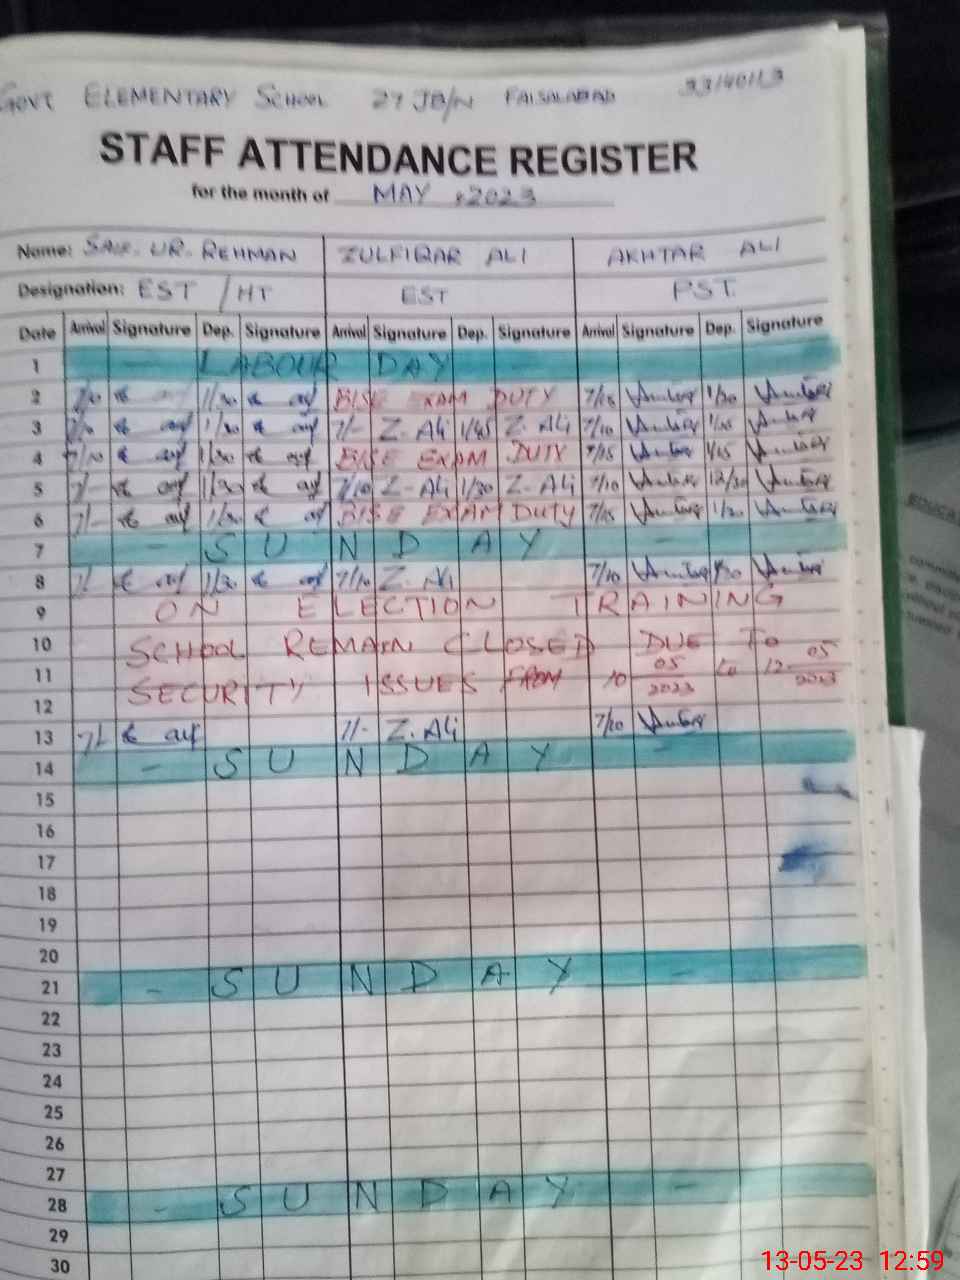 GOVT ELEMENTARY SCHOOL 27 JB/N FAISALABAD
STAFF ATTENDANCE REGISTER
for the month of MAY 2023
Name: SAIF. UR. REHMAN ZULFIQAR ALI AKHTAR ALI
Designation: EST / HT EST PST
Date Arrival Signature Dep. Signature Arrival Signature Dep. Signature Arrival Signature Dep. Signature
1 - LABOUR DAY -
2 1/30 BISE EXAM DUTY 7/15 1/30
3 1/30 7/- Z. Ali 1/45 Z. Ali 7/10 1/30
4 7/10 1/30 BISE EXAM DUTY 7/15 1/15
5 7/- 1/30 7/10 Z-Ali 1/30 Z-Ali 7/10 12/30
6 7/- 1/30 BISE EXAM DUTY 7/15 1/30
7 - SUNDAY
8 7/- 1/30 7/10 Z. Ali 7/10 1/30
9 ON ELECTION TRAINING
10 SCHOOL REMAIN CLOSED DUE TO
11 SECURITY ISSUES FROM 10 05/2023 to 12 05/2023
12
13 7/- 7/- Z. Ali 7/10
14 - SUNDAY -
15
16
17
18
19
20
21 - SUNDAY -
22
23
24
25
26
27
28 - SUNDAY -
29
30
EDUCA
13-05-23 12:59